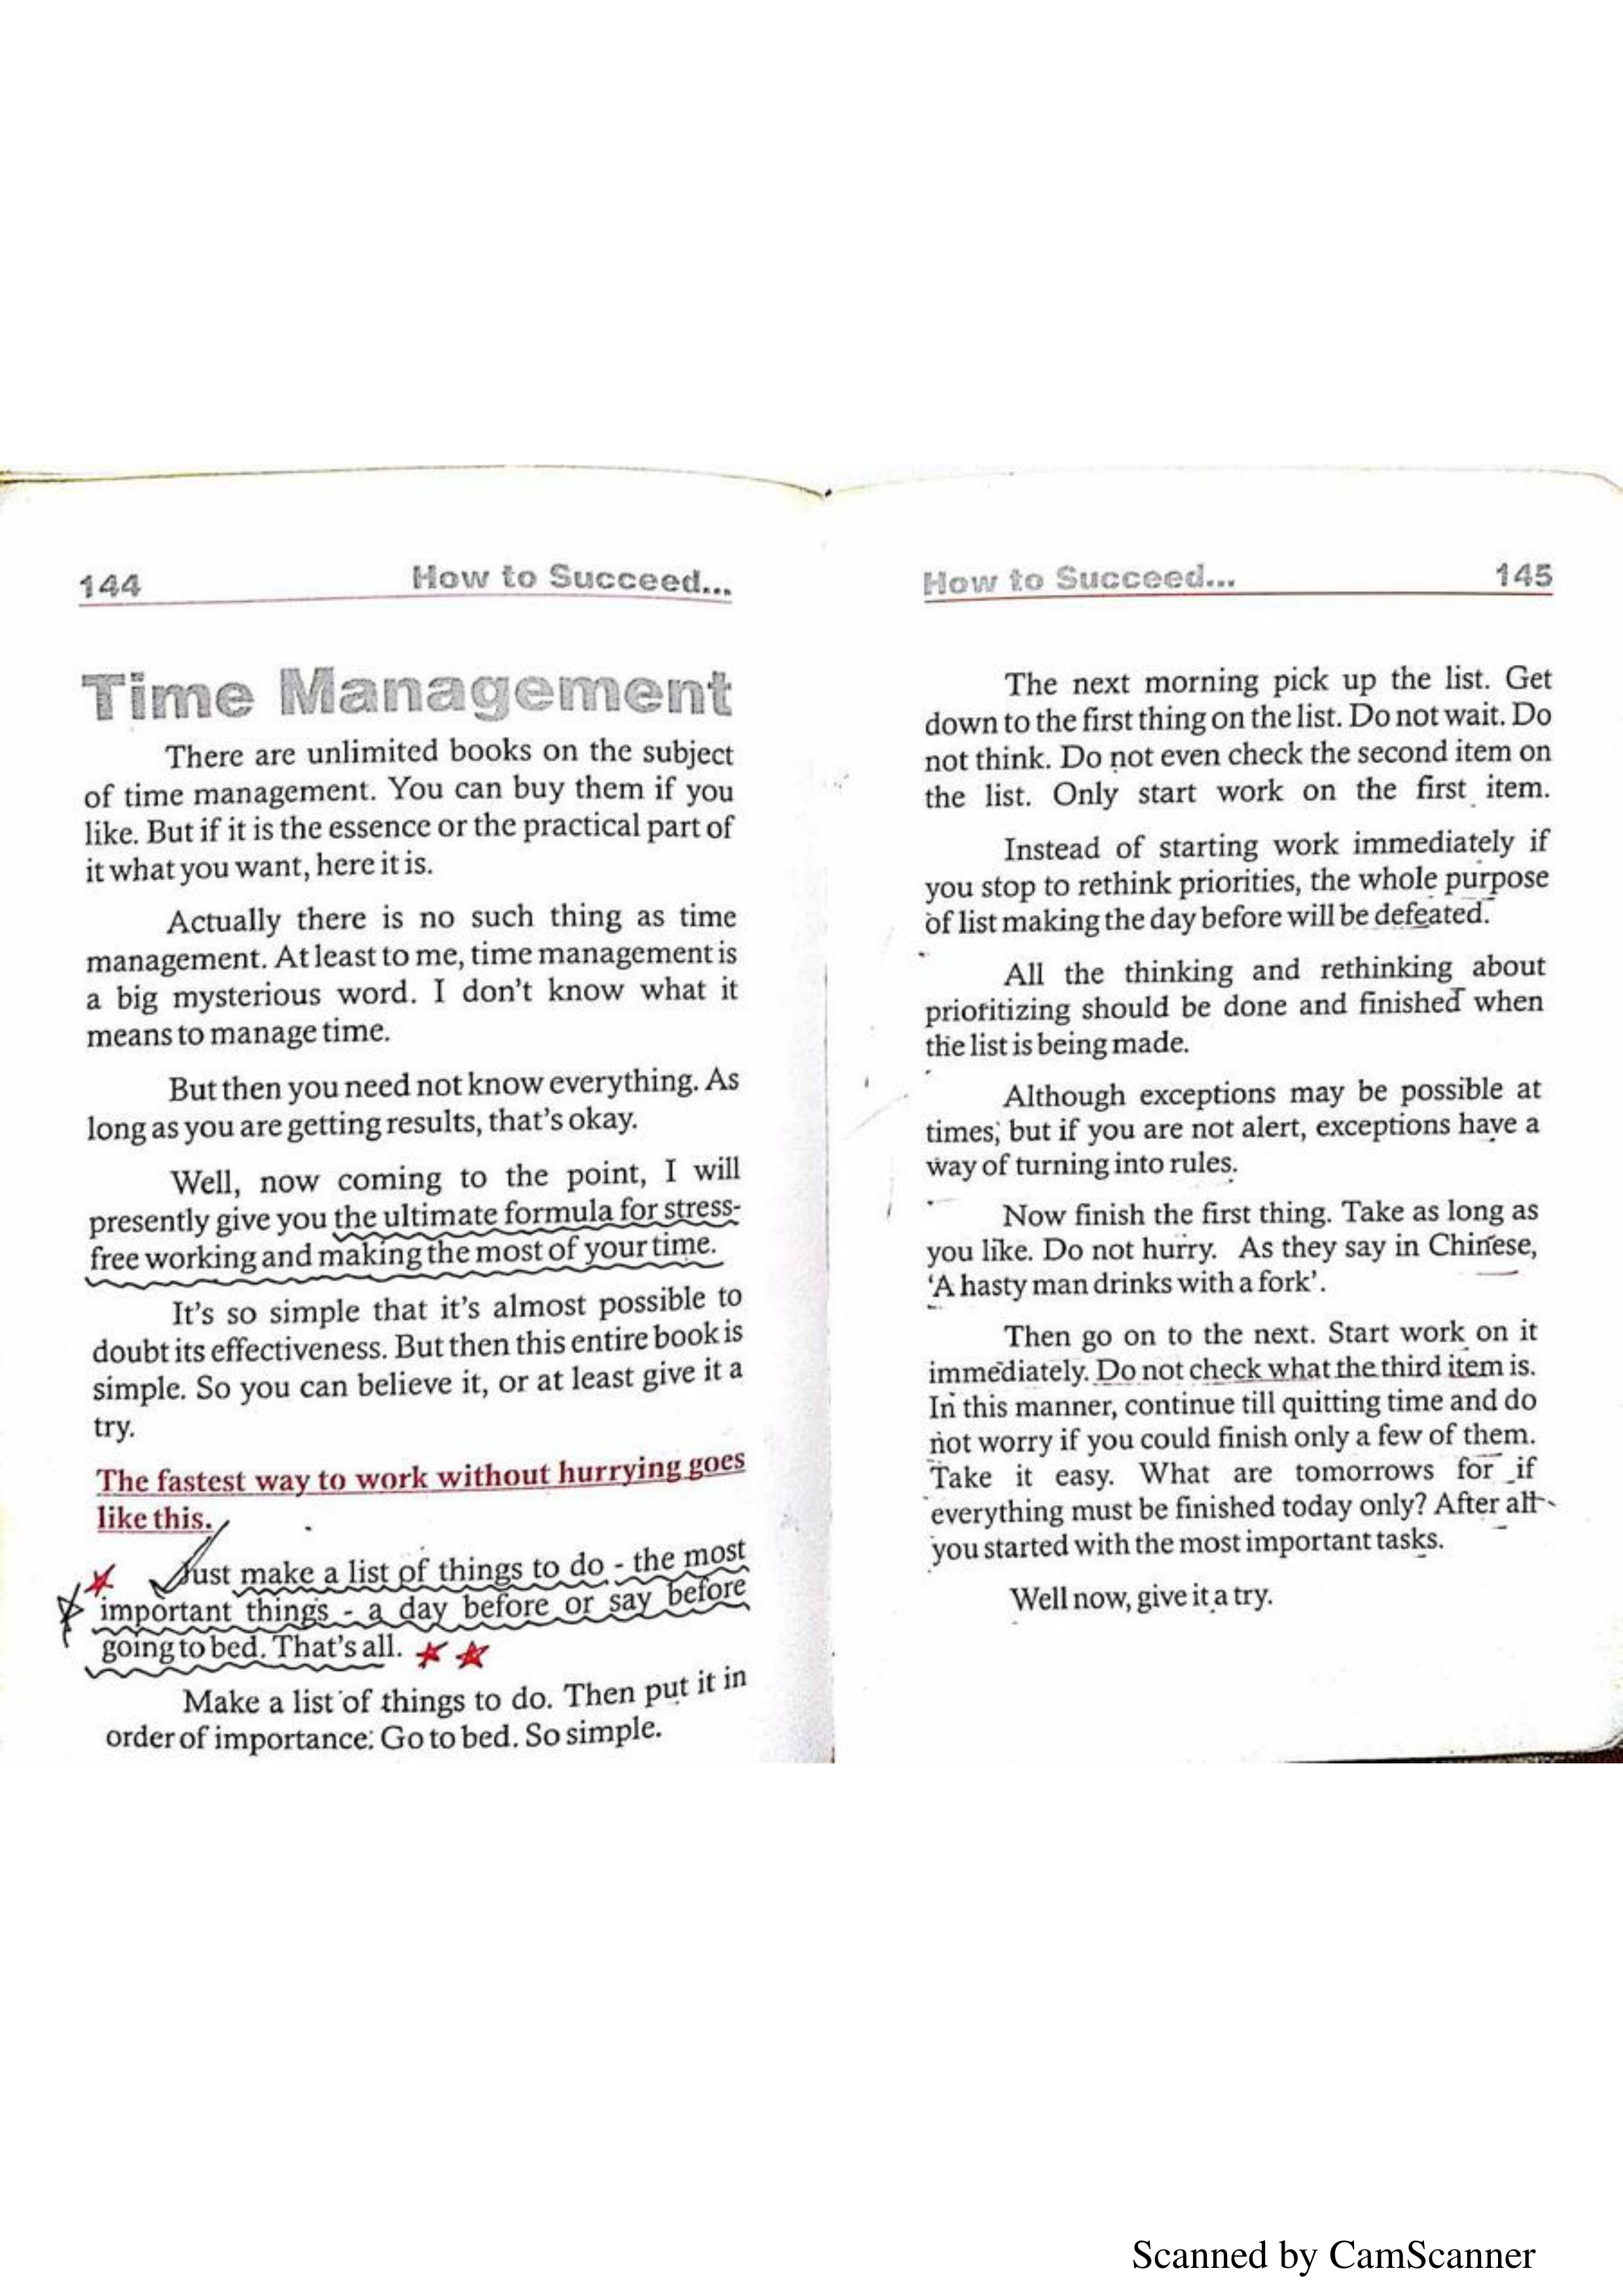 144 How to Succeed...
Time Management
There are unlimited books on the subject
of time management. You can buy them if you
like. But if it is the essence or the practical part of
it what you want, here it is.
Actually there is no such thing as time
management. At least to me, time management is
a big mysterious word. I don't know what it
means to manage time.
But then you need not know everything. As
long as you are getting results, that's okay.
Well, now coming to the point, I will
presently give you the ultimate formula for stress-
free working and making the most of your time.
It's so simple that it's almost possible to
doubt its effectiveness. But then this entire book is
simple. So you can believe it, or at least give it a
try.
The fastest way to work without hurrying goes
like this.
Just make a list of things to do - the most
important things - a day before or say before
going to bed. That's all.
Make a list of things to do. Then put it in
order of importance. Go to bed. So simple.
How to Succeed... 145
The next morning pick up the list. Get
down to the first thing on the list. Do not wait. Do
not think. Do not even check the second item on
the list. Only start work on the first item.
Instead of starting work immediately if
you stop to rethink priorities, the whole purpose
of list making the day before will be defeated.
All the thinking and rethinking about
prioritizing should be done and finished when
the list is being made.
Although exceptions may be possible at
times, but if you are not alert, exceptions have a
way of turning into rules.
Now finish the first thing. Take as long as
you like. Do not hurry. As they say in Chinese,
'A hasty man drinks with a fork'.
Then go on to the next. Start work on it
immediately. Do not check what the third item is.
In this manner, continue till quitting time and do
not worry if you could finish only a few of them.
Take it easy. What are tomorrows for if
everything must be finished today only? After all
you started with the most important tasks.
Well now, give it a try.
Scanned by CamScanner